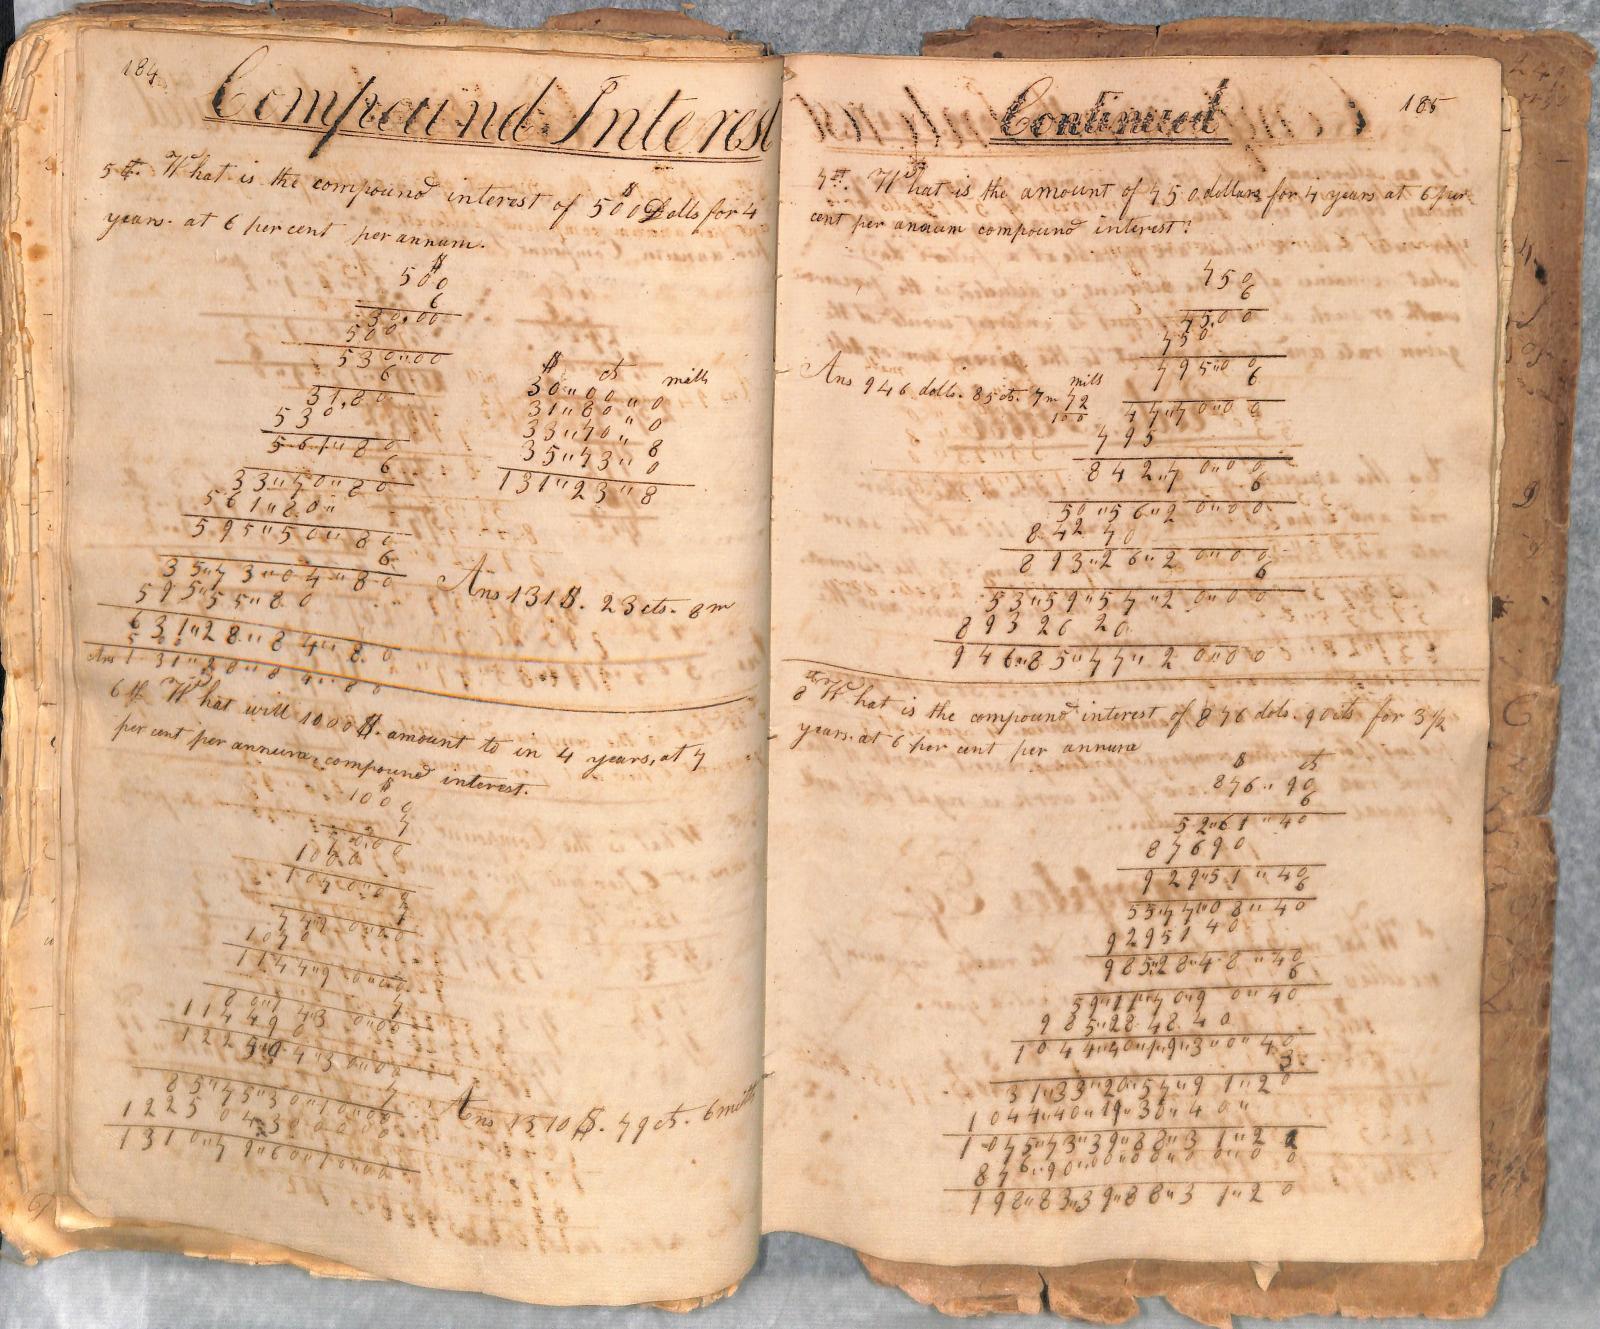 184
Compound Interest
5th. What is the compound interest of 500 Dolls for 4
years. at 6 per cent per annum.
$
500
6
30.00
500
530"00
6
31.80
530
561"80
6
33"70"80
561"80"
595"50"80
6
35"73"04"80
595"55"80
631"28"84"80
500
Ans 131"28"84"80
$ ct mills
30"00"0
31"80"0
33"70"0
35"73"8
0
131"23"8
Ans 131$. 23cts. 8m
6th What will 1000$. amount to in 4 years, at 7
per cent per annum, compound interest.
$
1000
7
70.00
1000
1070"00
7
74"90"00
1070
1144"90"00
7
80"143"0"00
11449 0
1225"04"30"00
7
85"75"30"10"00
1225 04 30 00 00
1310"79"60"10"00
Ans 1310$. 79ct. 6mills
Continued
185
7th. What is the amount of 750 dollars for 4 years at 6 per
cent per annum compound interest?
750
6
45.00
750
795"00
6
47"70"00
795
842"70"00
6
50"56"20"00
842 70
893"26"20"00
6
53"59"57"20"00
893 26 20
946"85"77"20"00
Ans 946 dolls. 85cts. 7m 72
mills
100
8th What is the compound interest of 876 dols. 90cts for 3 1/2
years. at 6 per cent per annum
$ ct
876"90
6
52"61"40
87690
929"51"40
6
55"77"08"40
92951 40
985"28"48"40
6
59"11"70"90"40
985"28 48 40
1044"40"19"30"40
3
31"33"20"57"91"20
1044"40"19"30"40"
1075"73"39"88"31"20
876"90"00"00"00"00
198"83"39"88"31"20